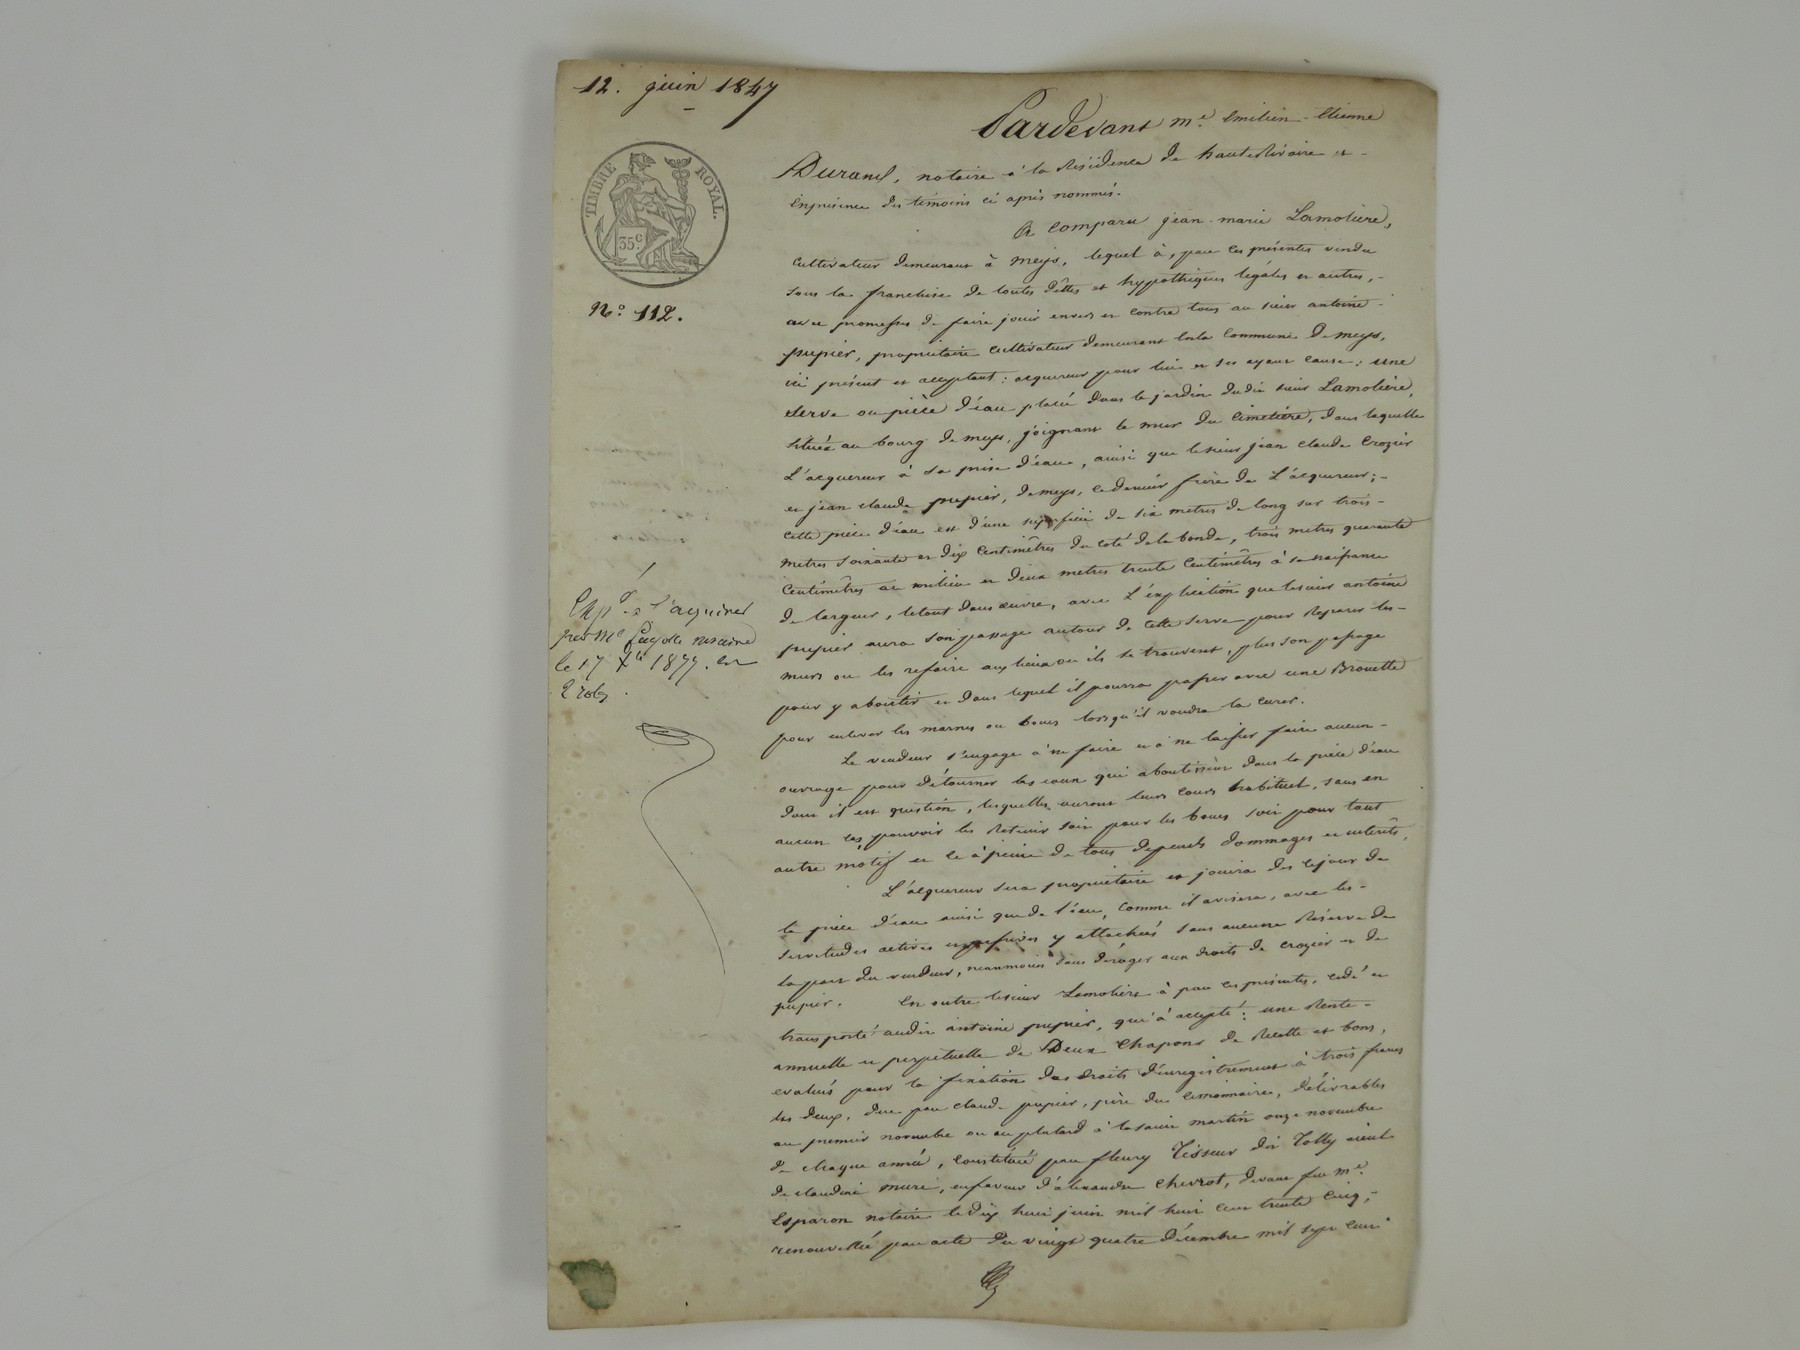 12. juin 1847
Pardevant me. Emilien-Etienne
Durand, notaire à la Résidence de hauteRivoire et-
Enprésence des témoins ci après nommés.
A Comparu jean-marie Lamolière,
cultivateur demeurant à meys, lequel à, par ces présentes vendu
sous la franchise de toutes dêttes et hypothèques légales et autres,-
avec promesses de faire jouir envers et contre tous au sieur antoine
pupier, propriétaire cultivateur demeurant enla Commune De meys,
ici présent et acceptant: acquereur pour lui et ses ayant cause: une
serve ou pièce d'eau placée dans le jardin dudit sieur Lamolière,
située au bourg de meys, joignant le mur du Cimetière, dans laquelle
L'acquereur à sa prise d'eau, ainsi que lesieur jean claude Crozier
et jean claude pupier, demeys, cedernier frère de L'acquereur;-
cette pièce d'eau est d'une superficie de six metres de long sur trois-
metres soixante et dix Centimêtres du coté dela bonde, trois metres quarante
Centimêtres au milieu et deux metres trente Centimêtres à sa naissance
de largeur, letout dans œuvre, avec L'explication que lesieur antoine
pupier aura son passage autour de cette serve pour Réparer les-
murs ou les refaire aux lieux où ils se trouvent, plus son passage
pour y aboutir et dans lequel il pourra passer avec une Brouette
pour enlever les marnes ou boues lorsqu'il voudra la curer.
Le vendeur s'engage à ne faire et à ne laisser faire aucun-
ouvrage pour détourner les eaux qui aboutissent dans la pièce d'eau
dont il est question, lesquelles auront leurs cours habituel, sans en
aucun cas pouvoir les Retenir soit pour les boues soit pour tout
autre motif et ce à peine de tous dépends dommages et intérêts.
L'acquereur sera propriétaire et jouira dès cejour de
la pièce d'eau ainsi que de l'eau, comme il avisera, avec les-
servitudes actives et passives y attachées sans aucune Réserve de
la part du vendeur, néanmoins sans déroger aux droits de crozier et de
pupier. En outre lesieur Lamolière à par ces présentes, cédé et
transporté audit antoine pupier, qui à accepté: une Rente-
annuelle et perpétuelle de Deux Chapons de Recette et bons,
evalués pour la fixation des droits d'enregistrement à trois francs
les deux, due par claude pupier, père du cessionnaire, délivrables
au premier novembre ou au plutard à lasaint martin onze novembre
de chaque année, constituée par fleury Tisseur dit Tolly aieul
de claudine mure, enfaveur d'alexandre Chevrot, devant feu me.
Esparon notaire le dix huit juin mil huit cent trente cinq,-
renouvellée par acte du vingt quatre décembre mil sept cent
TIMBRE ROYAL.
35c.
No. 112.
Expd. à l'acquéreur
par Me notaire
le 17 Xbre 1877. en
2 roles.